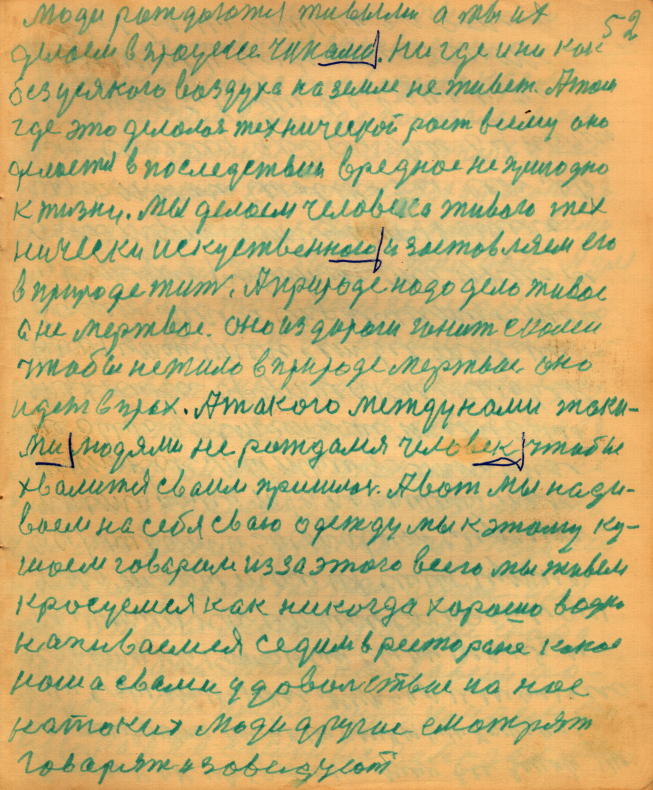 52
Люди рождаются живыми а мы их
делаем в процессе чуками. Ни где и ни как
без усякого воздуха на земле не живет. А там
где это делалося технической рост всему оно
делается в последствии вредное не пригодно
к жизни. Мы делаем человека живого тех
нически искуственного и заставляем его
в природе жить. А природе надо дело живое
а не мертвое. Оно из дороги гонит с колеи
чтобы не жило в природе мертвое оно
идет в прах. А такого между нами таки-
ми людями не рождался человек чтобы
хвалится своим пришлог. А вот мы нади-
ваем на себя сваю одежду мы к этому ку-
шаем говарим из за этого всего мы живем
кросуемся как никогда хорошо водки
напиваемся седим в ресторане какое
наша свами удоволствие на нас
на таких люди другие смотрят
говарят и заведуют